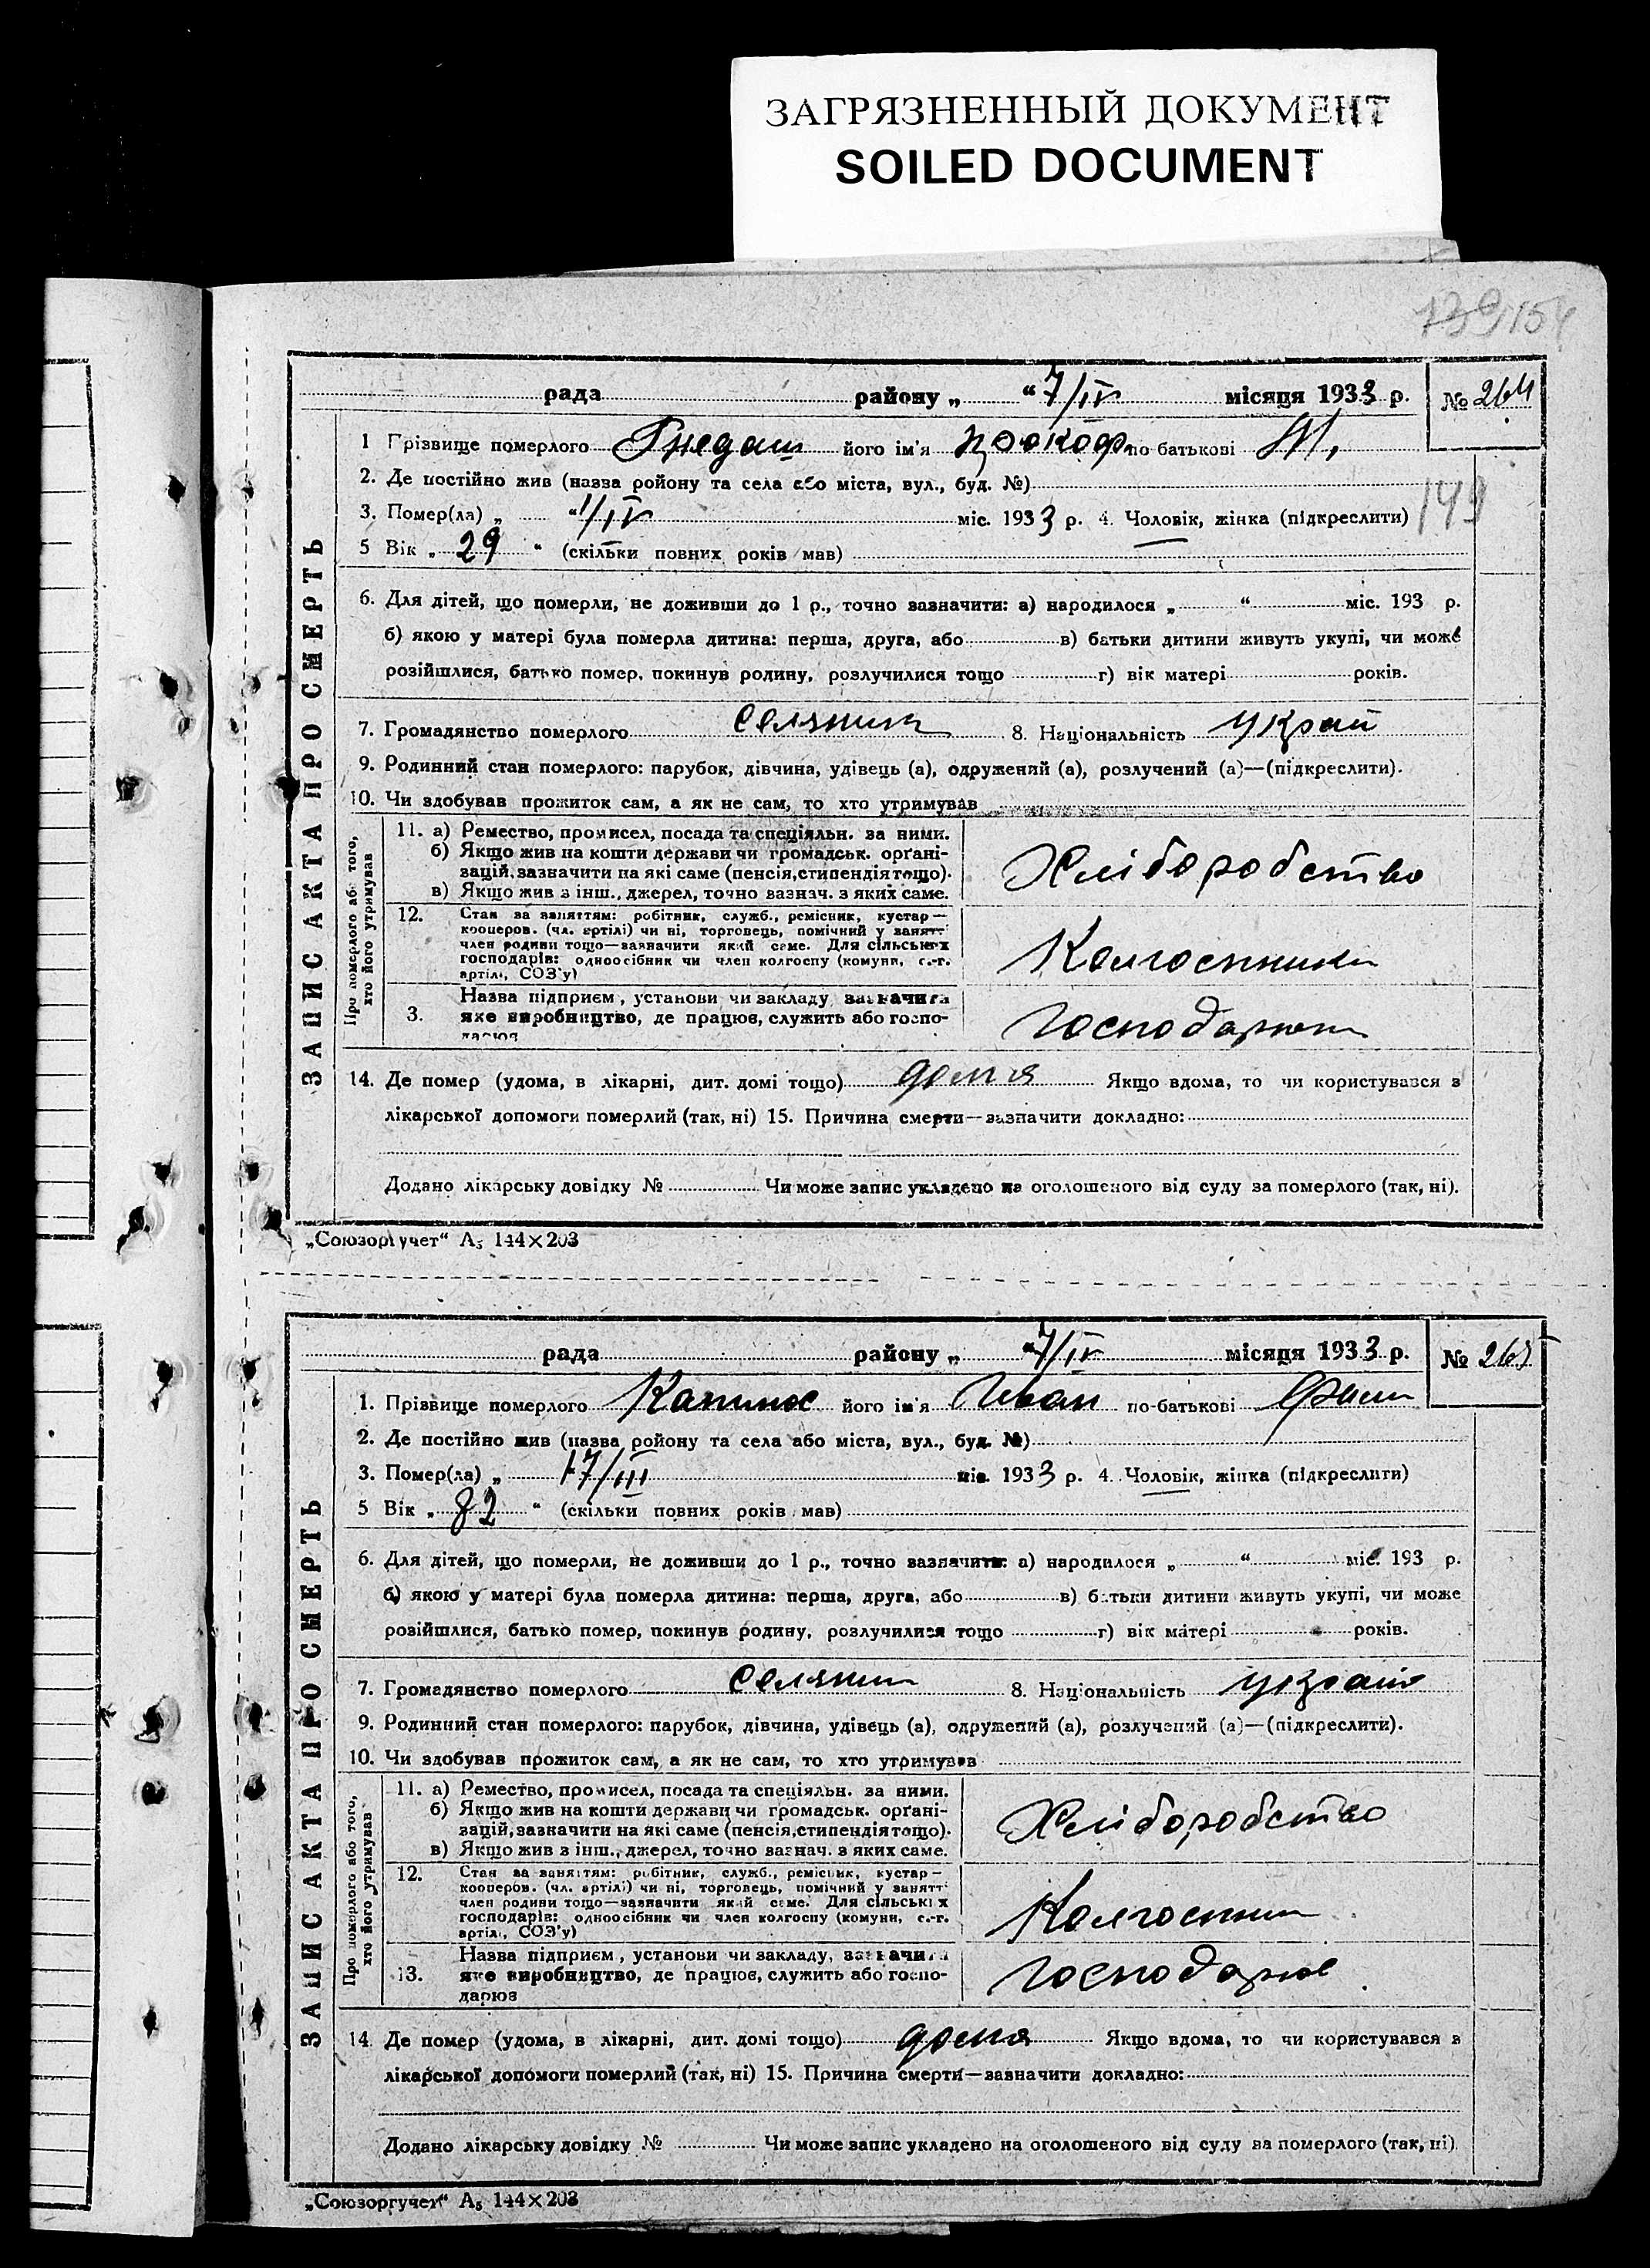 ЗАГРЯЗНЕННЫЙ ДОКУМЕНТ
SOILED DOCUMENT
139 154
рада района „ “ 7/IV місяця 1933 р. № 264
ЗАПИС АКТА ПРО СМЕРТЬ
1 Прізвище померлого Гнедаш його ім'я Прокоф по батькові М,
2. Де постійно жив (назва ройону та села або міста, вул., буд. №)
149
3. Помер(ла) „ “ 1/IV міс. 1933 р. 4. Чоловік, жінка (підкреслити)
5 Вік „ 29 “ (скільки повних років мав)
6. Для дітей, що померли, не доживши до 1 р., точно зазначити: а) народилося „ “ міс. 193 р.
б) якою у матері була померла дитина: перша, друга, або в) батьки дитини живуть укупі, чи може
розійшлися, батько помер, покинув родину, розлучилися тощо г) вік матері років.
7. Громадянство померлого селянин 8. Національність Україн
9. Родинний стан померлого: парубок, дівчина, удівець (а), одружений (а), розлучений (а)—(підкреслити).
10. Чи здобував прожиток сам, а як не сам, то хто утримував
Про померлого або того, хто його утримував
11. а) Ремество, промисел, посада та спеціяльн. за ними.
б) Якщо жив на кошти держави чи громадськ. орґані-
зацій, зазначити на які саме (пенсія, стипендія тощо).
в) Якщо жив з інш., джерел, точно зазнач. з яких саме.
Хліборобство
12. Стан за заняттям: робітник, служб., ремісник, кустар—
кооперов. (чл. артілі) чи ні, торговець, помічний у занятті
член родини тощо—зазначити який саме. Для сільських
господарів: одноосібник чи член колгоспу (комуни, с.-г.
артілі, СОЗ'у)
Колгоспник
Назва підприєм, установи чи закладу, зазначити
3. яке виробництво, де працює, служить або госпо-
дарює
14. Де помер (удома, в лікарні, дит. домі тощо) дома Якщо вдома, то чи користувався з
лікарської допомоги померлий (так, ні) 15. Причина смерти—зазначити докладно:
Додано лікарську довідку № Чи може запис укладено на оголошеного від суду за померлого (так, ні).
„Союзоргучет“ А₅ 144×203
рада району „ “ 7/IV місяця 1933 р. № 265
ЗАПИС АКТА ПРО СМЕРТЬ
1. Прізвище померлого його ім'я Иван по-батькові
2. Де постійно жив (назва ройону та села або міста, вул., буд. №)
3. Помер(ла) „ 17/III міс. 1933 р. 4. Чоловік, жінка (підкреслити)
5 Вік „ 82 “ (скільки повних років мав)
6. Для дітей, що померли, не доживши до 1 р., точно зазначити: а) народилося „ “ міс. 193 р.
б) якою у матері була померла дитина: перша, друга, або в) батьки дитини живуть укупі, чи може
розійшлися, батько помер, покинув родину, розлучилися тощо г) вік матері років.
7. Громадянство померлого селянин 8. Національність Україн
9. Родинний стан померлого: парубок, дівчина, удівець (а), одружений (а), розлучений (а)—(підкреслити).
10. Чи здобував прожиток сам, а як не сам, то хто утримував
Про померлого або того, хто його утримував
11. а) Ремество, промисел, посада та спеціяльн. за ними.
б) Якщо жив на кошти держави чи громадськ. орґані-
зацій, зазначити на які саме (пенсія, стипендія тощо).
в) Якщо жив з інш., джерел, точно зазнач. з яких саме.
Хліборобство
12. Стан за заняттям: робітник, служб., ремісник, кустар—
кооперов. (чл. артілі) чи ні, торговець, помічний у занятті
член родини тощо—зазначити який саме. Для сільських
господарів: одноосібник чи член колгоспу (комуни, с.-г.
артілі, СОЗ'у)
Колгоспник
Назва підприєм, установи чи закладу, зазначити
13. яке виробництво, де працює, служить або госпо-
дарює
Господарює
14 Де помер (удома, в лікарні, дит. домі тощо) дома Якщо вдома, то чи користувався з
лікарської допомоги померлий (так, ні) 15. Причина смерти—зазначити докладно:
Додано лікарську довідку № Чи може запис укладено на оголошеного від суду за померлого (так, ні).
„Союзоргучет“ А₅ 144×203